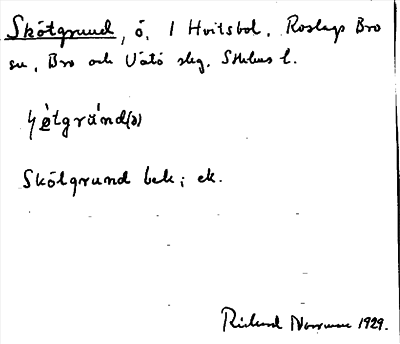 Skötgrund, ö, 1 Hvitsbol, Roslags Bro
sn, Bro och Vätö slg, Sthlms l.
Skötgrund bek; ek.
Rickard Norrman 1929.